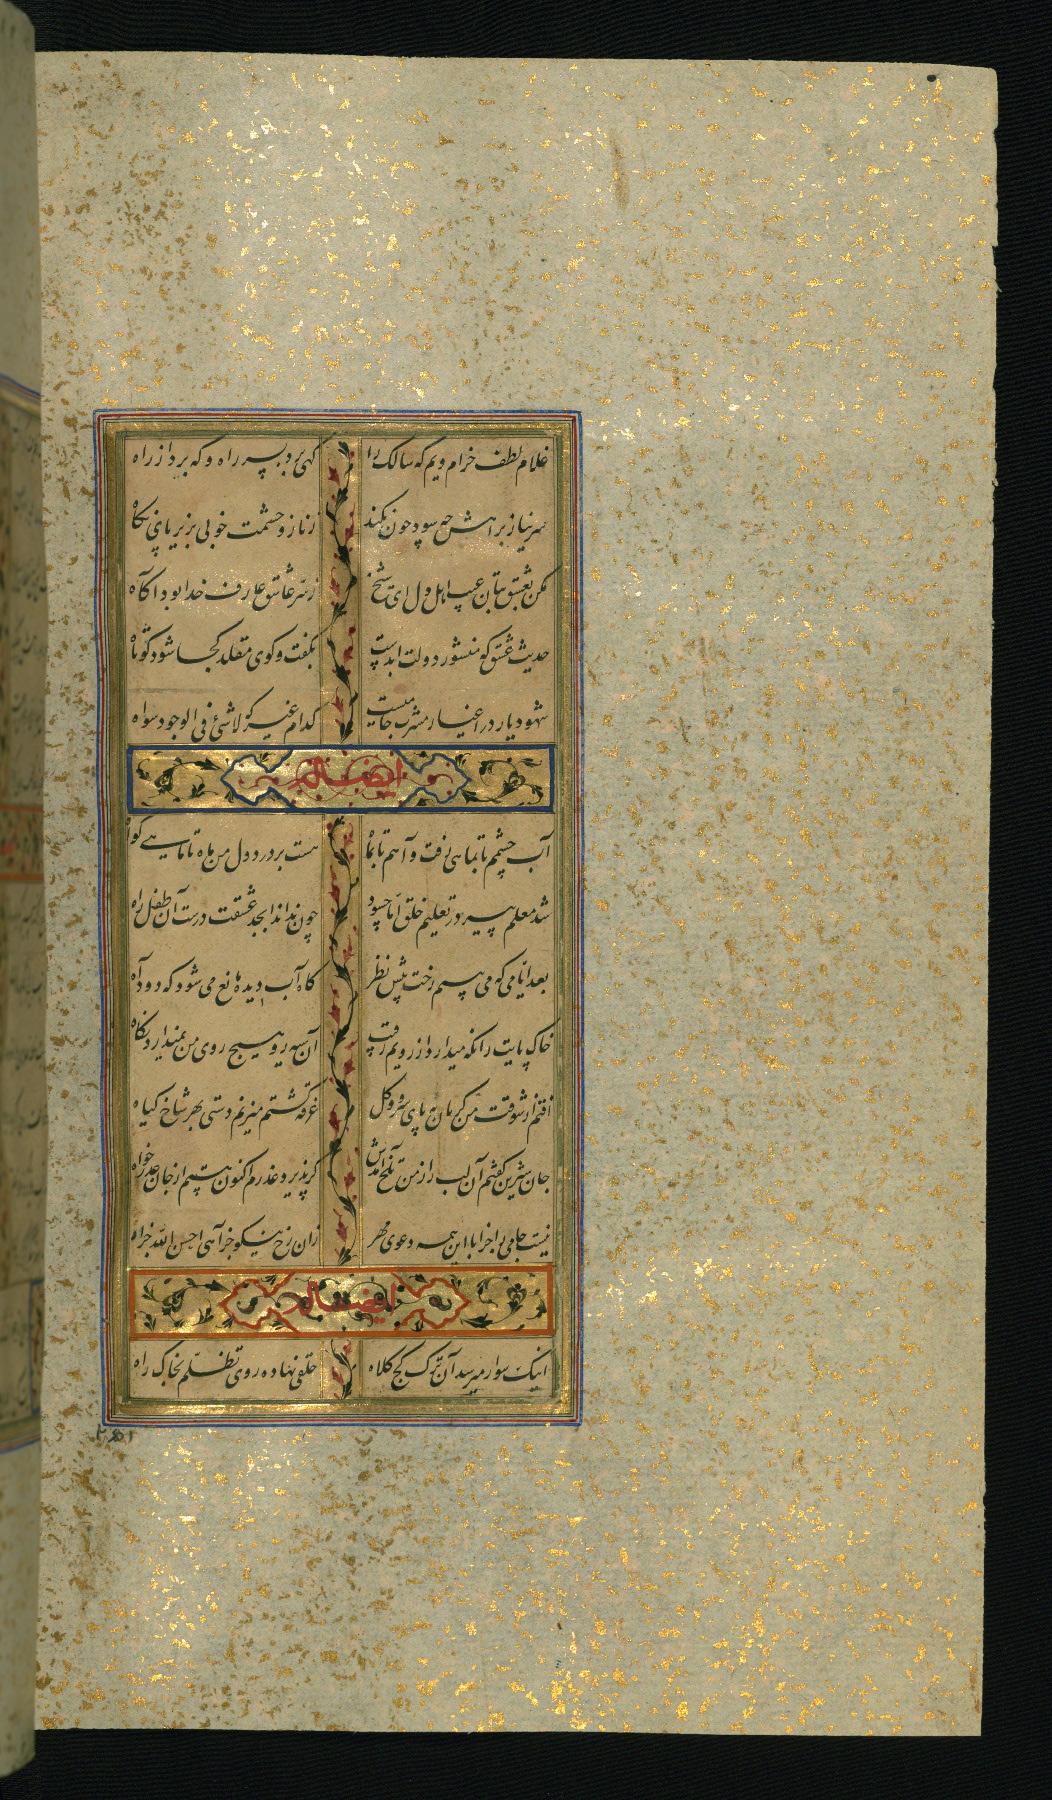 غلام لطف خرام ویم که سالک را گهی برد بسر راه و گه برد از راه
سر نیاز براهش چه سود چون نکند ز ناز و حشمت خوبی بزیر پای نگاه
مکن بعشق بتان عیب اهل دل ای شیخ ز سر عاشق عارف خدا بود آگاه
حدیث عشق که منشور دولت ابدیست بگفت و کوی مقلد کجا شود کوتاه
شهود یار در اغیار مشرب جامیست کدام غیر که لاشئ فی الوجود سواه
ایضا له
آب چشمم تا بماهی رفت و آهم تا بماه هست بر درد دل من ماه تا ماهی گواه
شد معلم پیر در تعلیم خلق اما چه سود چون نداند ابجد عشقت درست آن طفل راه
بعد ایامی که می بینم رخت پیش نظر گاه آب دیده مانع می شود گه دود آه
خاک پایت را نگه میدارد از رویم رقیب آن سیه رو هیچ روی من نمیدارد نگاه
افتم از شوقت من گریان بپای سرو و گل غرقه گشتم میزنم دستی بهر شاخ گیاه
جان شیرین گفتم آن لب را ز من تلخ آمدش گر پذیرد عذرم اکنون هستم از جان عذر خواه
نیست جامی را جزا با این همه دعوی مهر زان رخ نیکو جز آهی احسن الله جزاه
ایضا له
اینک سوار میرسد آن ترک کج کلاه خلقی نهاده روی تظلم بخاک راه